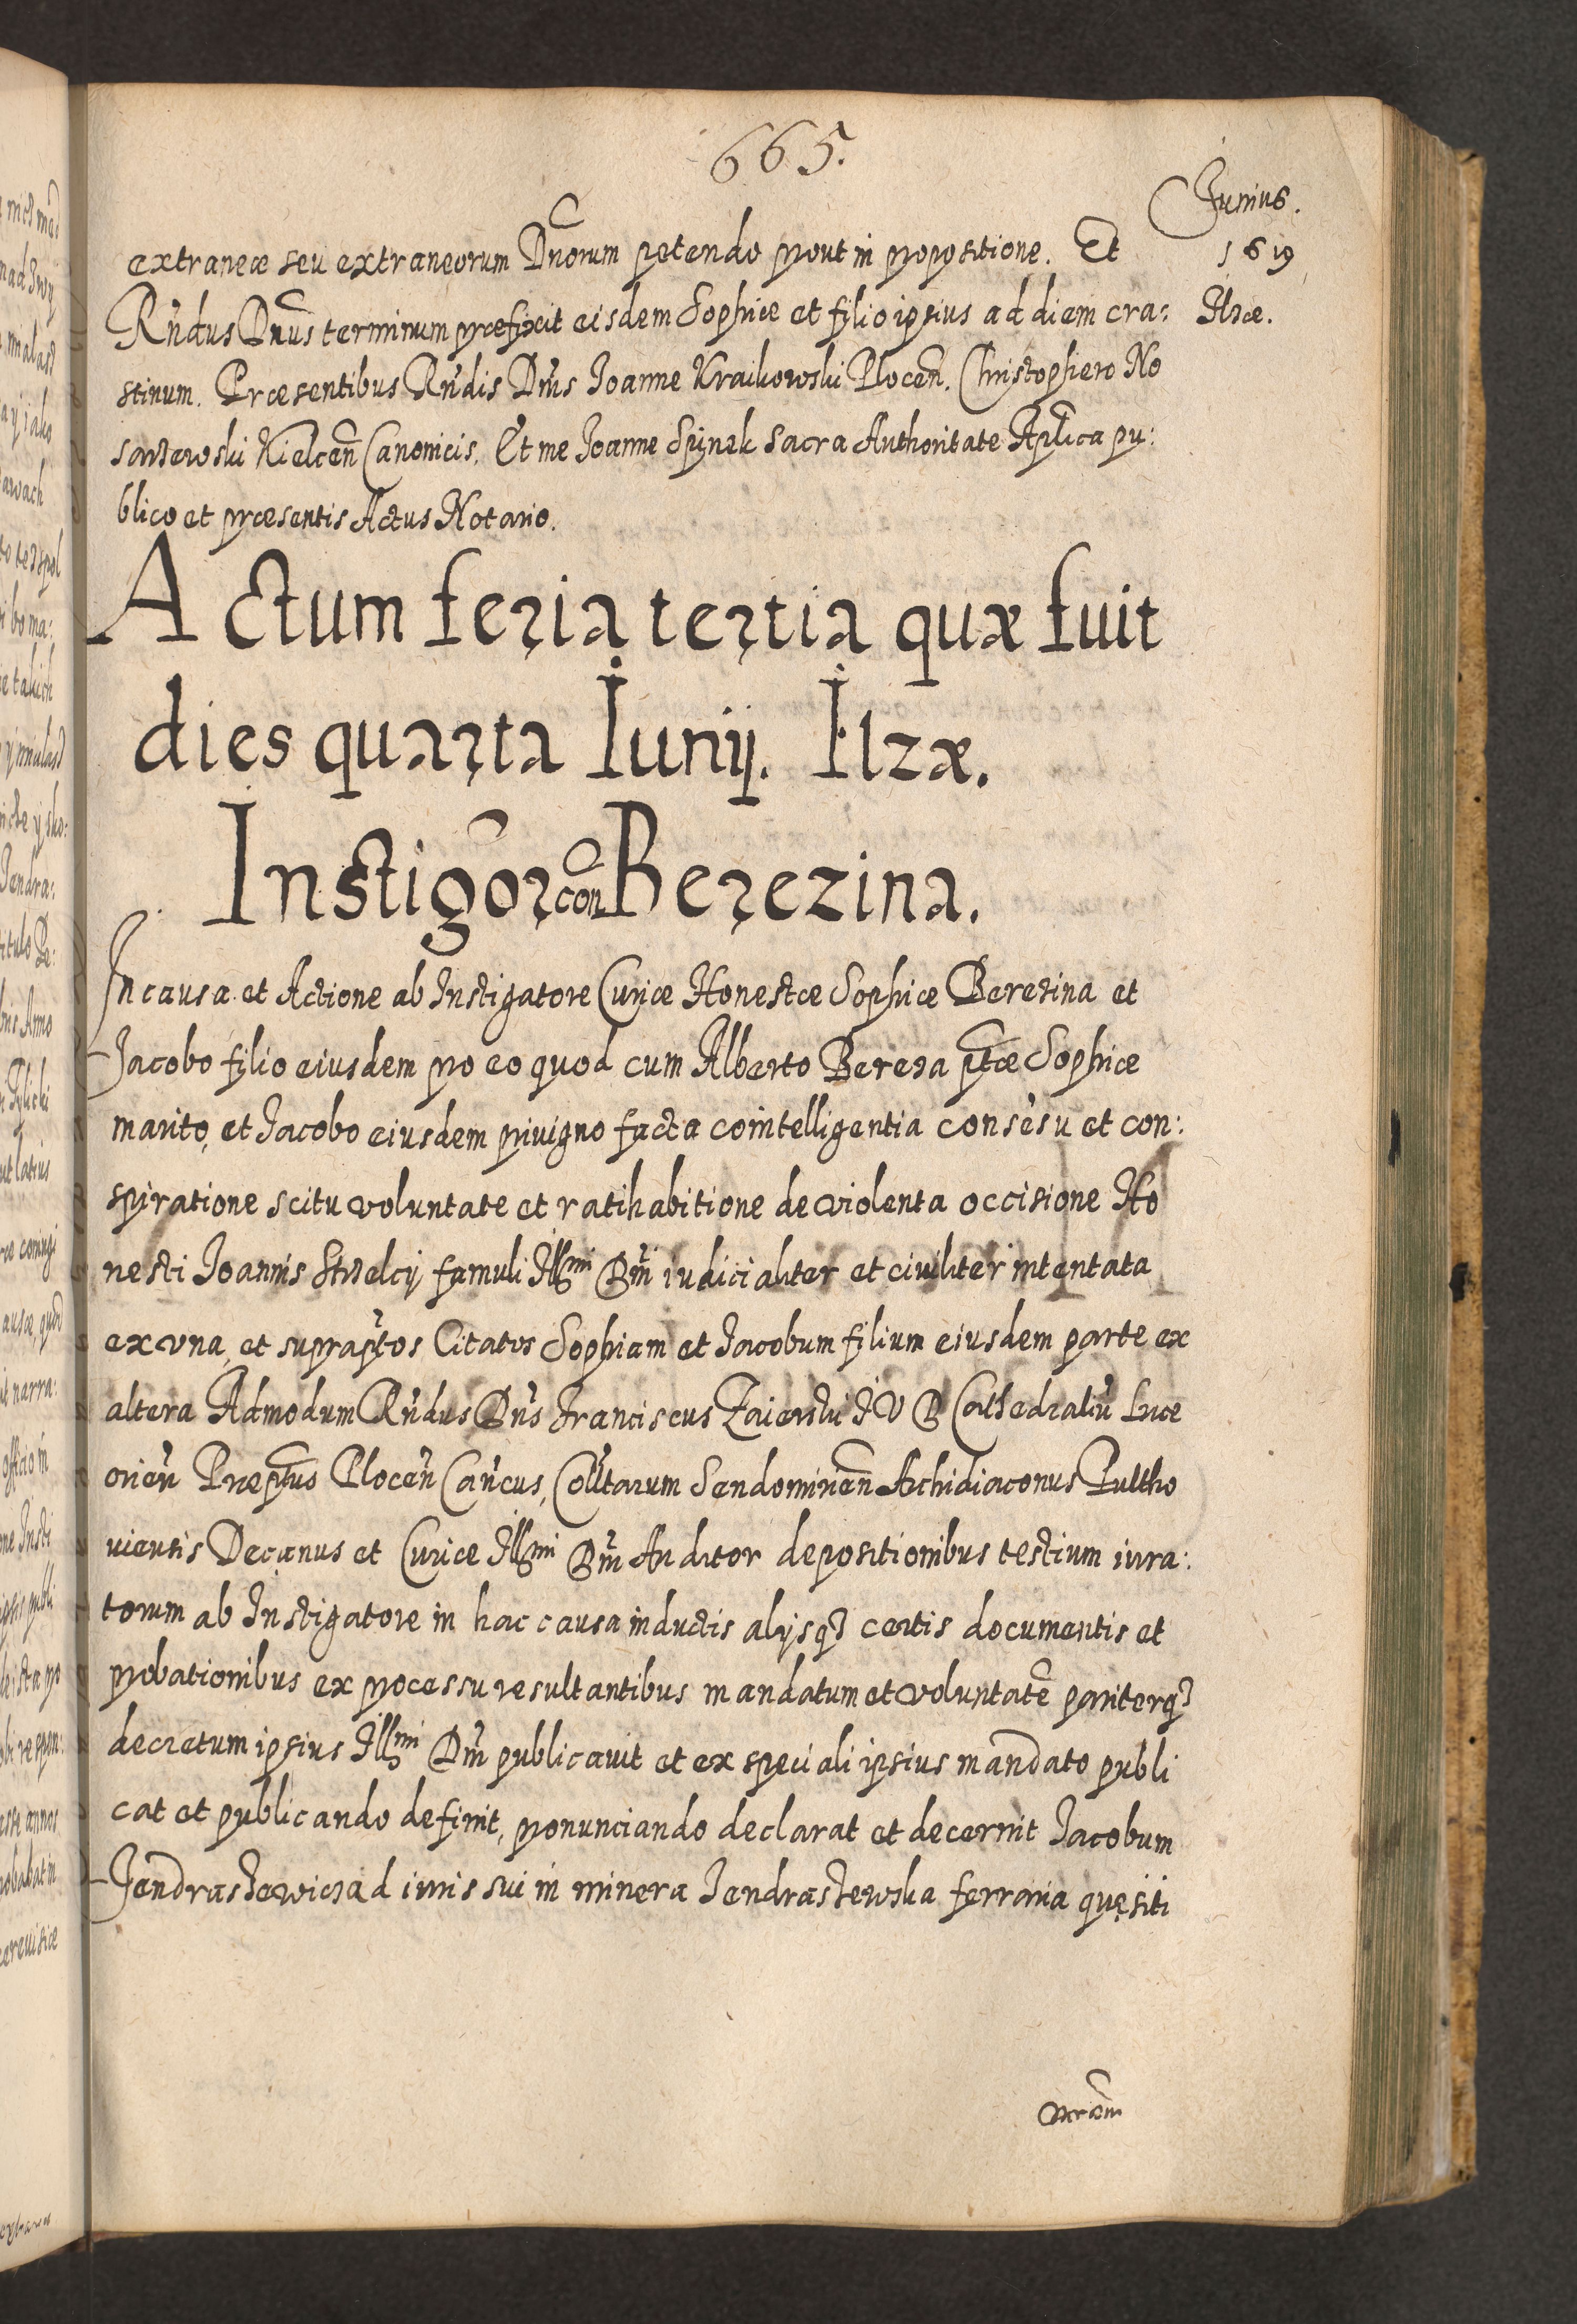 665.
Junius.
1619
Ilzæ.
extraneæ seu extraneorum Dnorum petendo prout in propositione. Et
Rndus Dnus terminum præfixit eisdem Sophiæ et filio ipsius ad diem cra:
stinum. Præsentibus Rndis Dnis Joanne Kraikowski Plocen. Christophero No
Kielcen Canonicis. Et me Joanne Spinek Sacra Authoritate Aplica pu:
blico et præsentis Actus Notario.
Actum feria tertia quæ fuit
dies quarta Iunij. Ilzæ.
Instigor con Berezina.
In causa et Actione ab Instigatore Curiæ Honestæ Sophiæ Berezina et
Jacobo filio eiusdem pro eo quod cum Alberto Bereza ptæ Sophiæ
marito, et Jacobo eiusdem privigno facta cointelligentia consesu et con:
spiratione scitu voluntate et ratihabitione de violenta occisione Ho
nesti Joannis Strzelcij famuli Illmi Dni iudicialiter et civiliter intentata
ex una, et supraptos Citatos Sophiam et Jacobum filium eiusdem parte ex
altera Admodum Rndus Dns Franciscus Zaierski I V D Cathedraliu Luce
orien Præptus Plocen Cancus, Colltarum Sendomirien Archidiaconus Pultho
viensis Decanus et Curiæ Illmi Dni Auditor depositionibus testium iura:
torum ab Instigatore in hac causa inductis alijsq3 certis documentis et
probationibus ex processu resultantibus mandatum et voluntate pariterq3
decretum ipsius Illmi Dni publicavit et ex speciali ipsius mandato publi
cat et publicando definit, pronunciando declarat et decernit Jacobum
Jendraszewicz ad iuris sui in minera Jendraszewska ferraria quęsiti